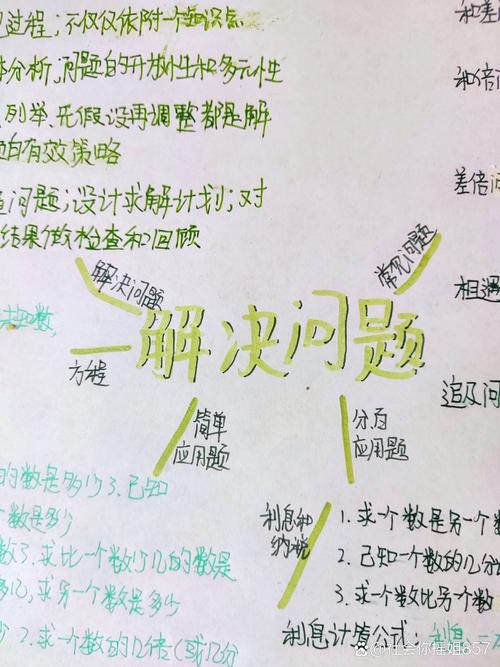 过程；不仅仅依附一个知识点
分析，问题的开放性和多元性
列举、先假设再调整都是解
有效策略
问题；设计求解计划；对
结果做检查和回顾
和差
和倍
差倍问
相遇
追及问
解决问题
常见问题
解决问题
方程
简单
应用题
分百
应用题
利息和
纳税
的数是多少3.已知
数是多少
数3.求比一个数少几的数是
多几，求另一个数是多少
2.求一个数的几倍(或几分
1.求一个数是另一个数
2.已知一个数的几分
3.求一个数比另一个数
利息计算公式：利息=
@社会你摇姐857